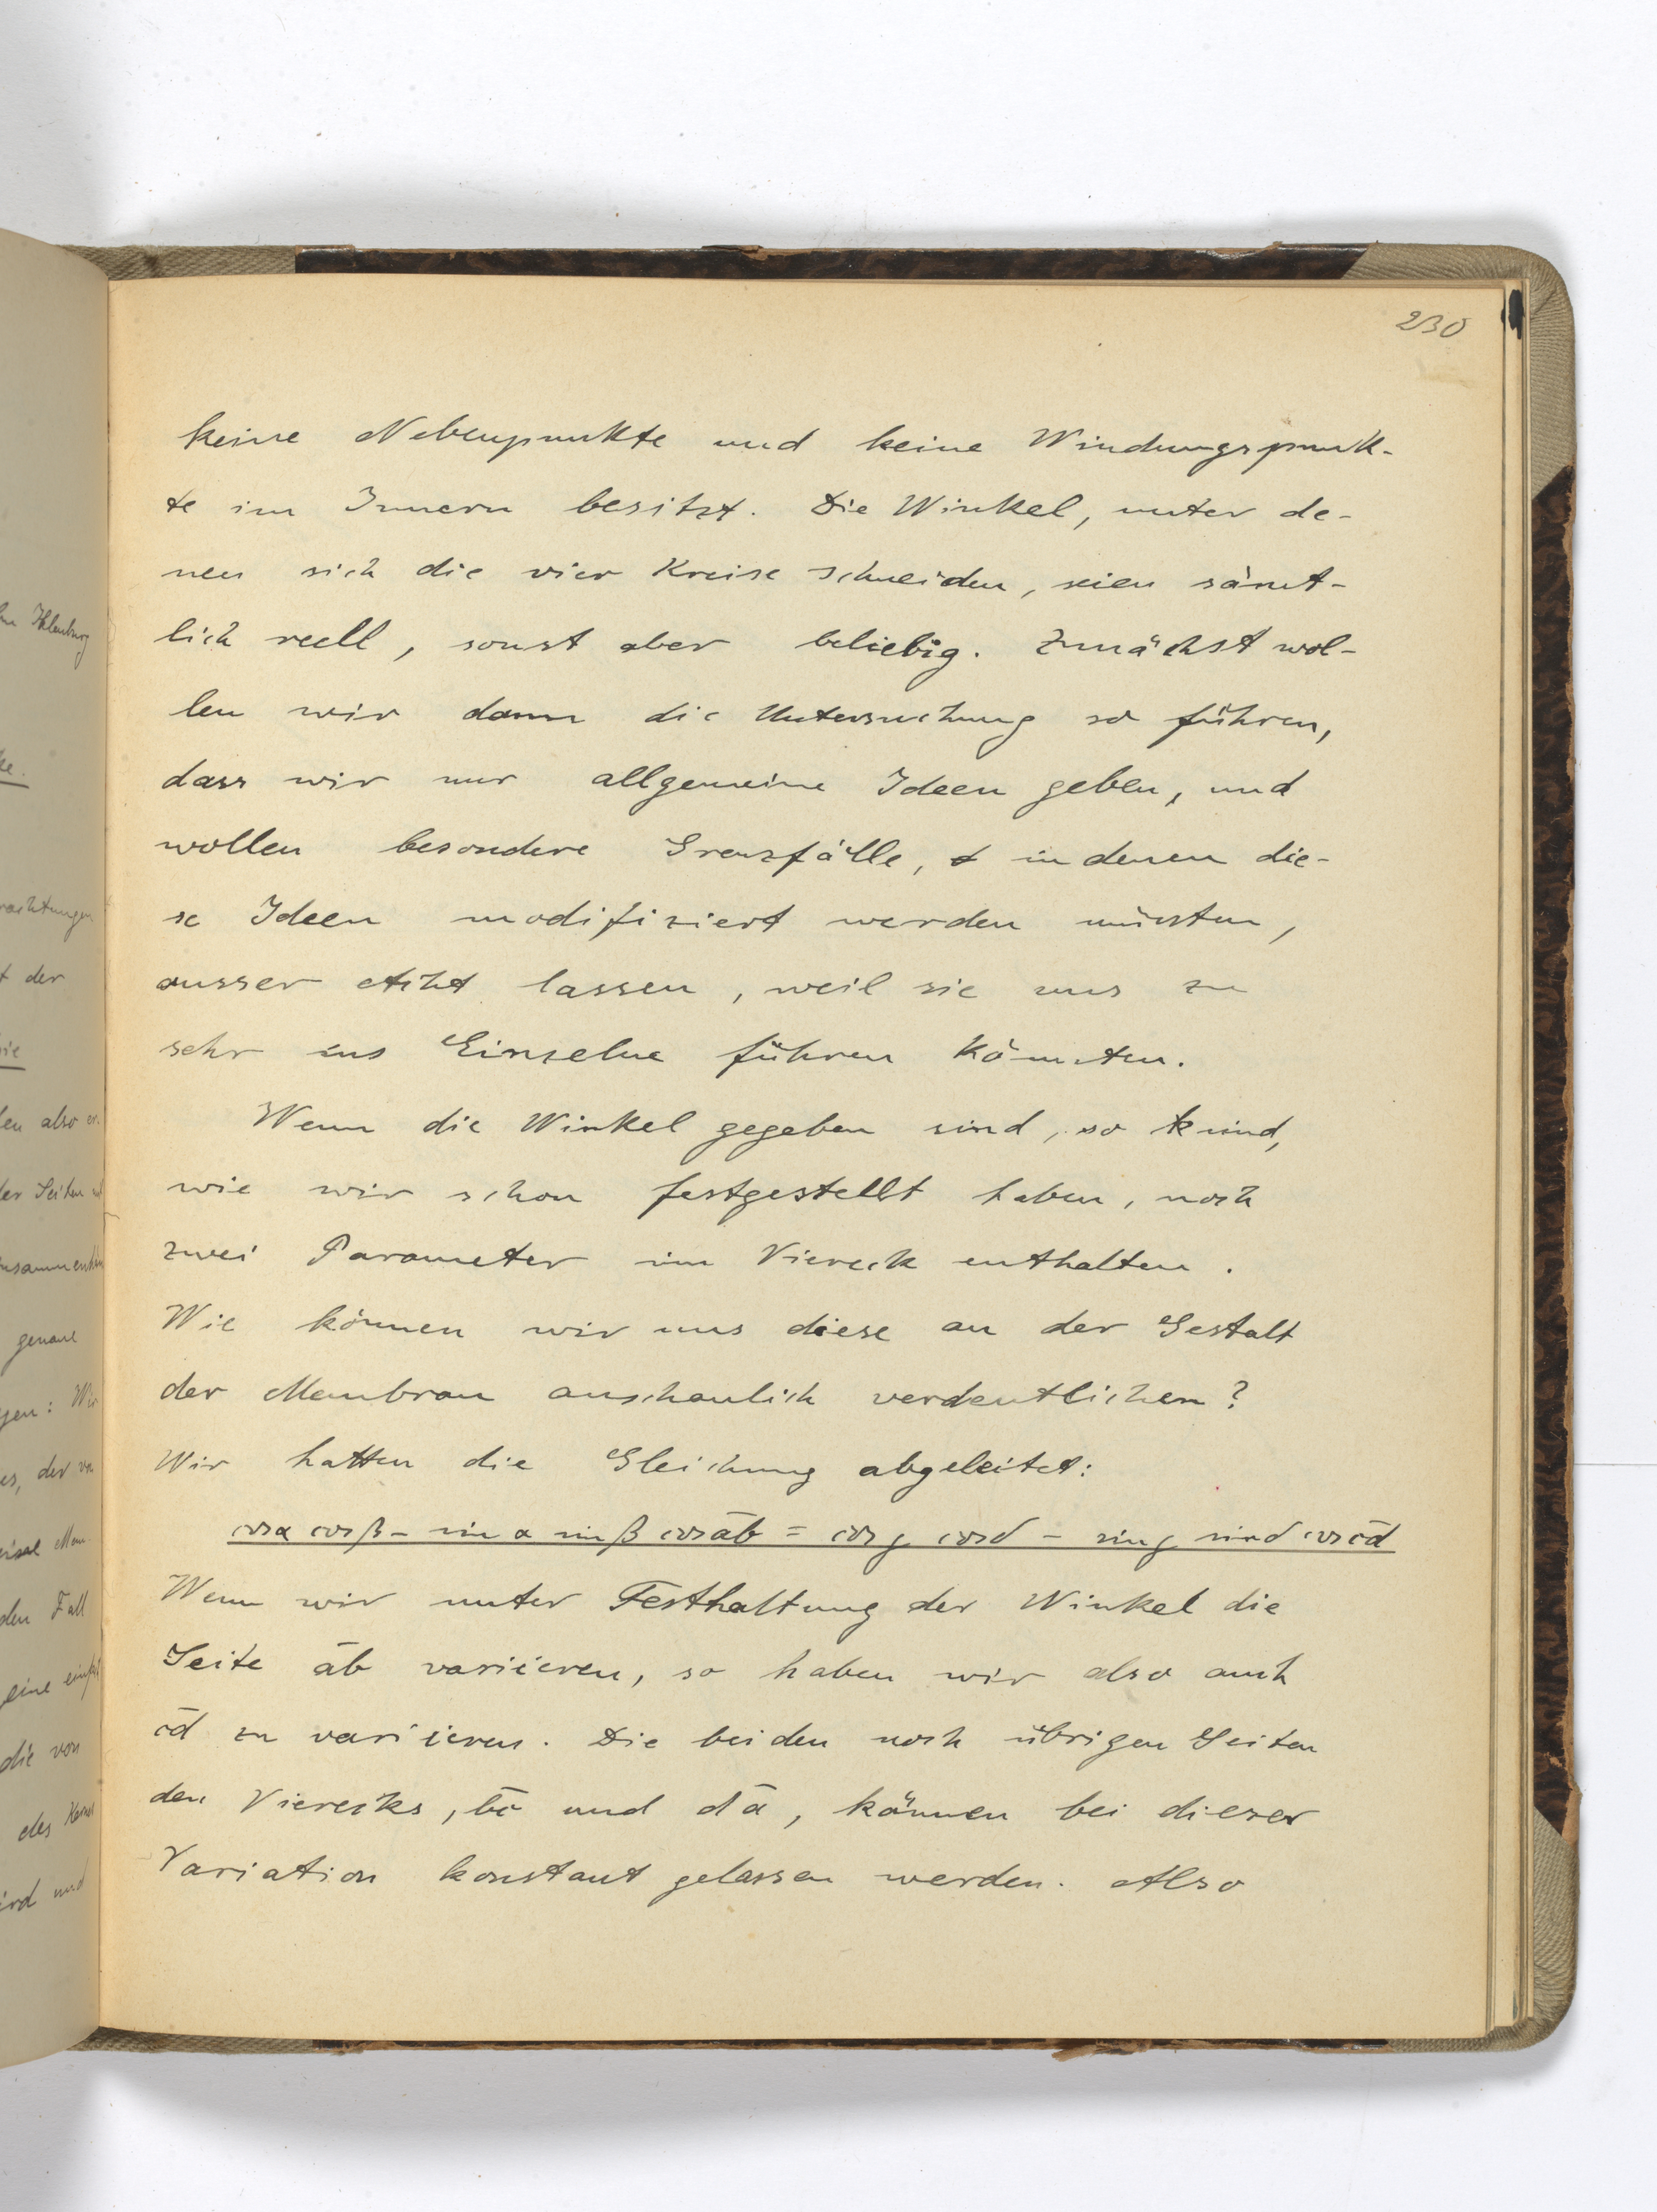 230
keine Nebenpunkte und keine Windungspunk-
te im Innern besitzt. Die Winkel, unter de-
nen sich die vier Kreise schneiden, seien sämt-
lich reell, sonst aber beliebig. Zunächst wol-
len wir dann die Untersuchung so führen,
dass wir nur allgemeine Ideen geben, und
wollen besondere Grenzfälle, in denen die-
se Ideen modifiziert werden müssten,
ausser Acht lassen, weil sie uns zu
sehr ins Einzelne führen könnten.
Wenn die Winkel gegeben sind, so sind,
wie wir schon festgestellt haben, noch
zwei Parameter im Viereck enthalten.
Wie können wir uns diese an der Gestalt
der Membran anschaulich verdeutlichen?
Wir hatten die Gleichung abgeleitet:
cos α cos β - sin α sin β cos a̅b̅ = cos γ cos δ - sin γ sin δ cos c̅d̅
Wenn wir unter Festhaltung der Winkel die
Seite a̅b̅ variieren, so haben wir also auch
c̅d̅ zu variieren. Die beiden noch übrigen Seiten
des Vierecks, b̅c̅ und d̅a̅, können bei dieser
Variation konstant gelassen werden. Also